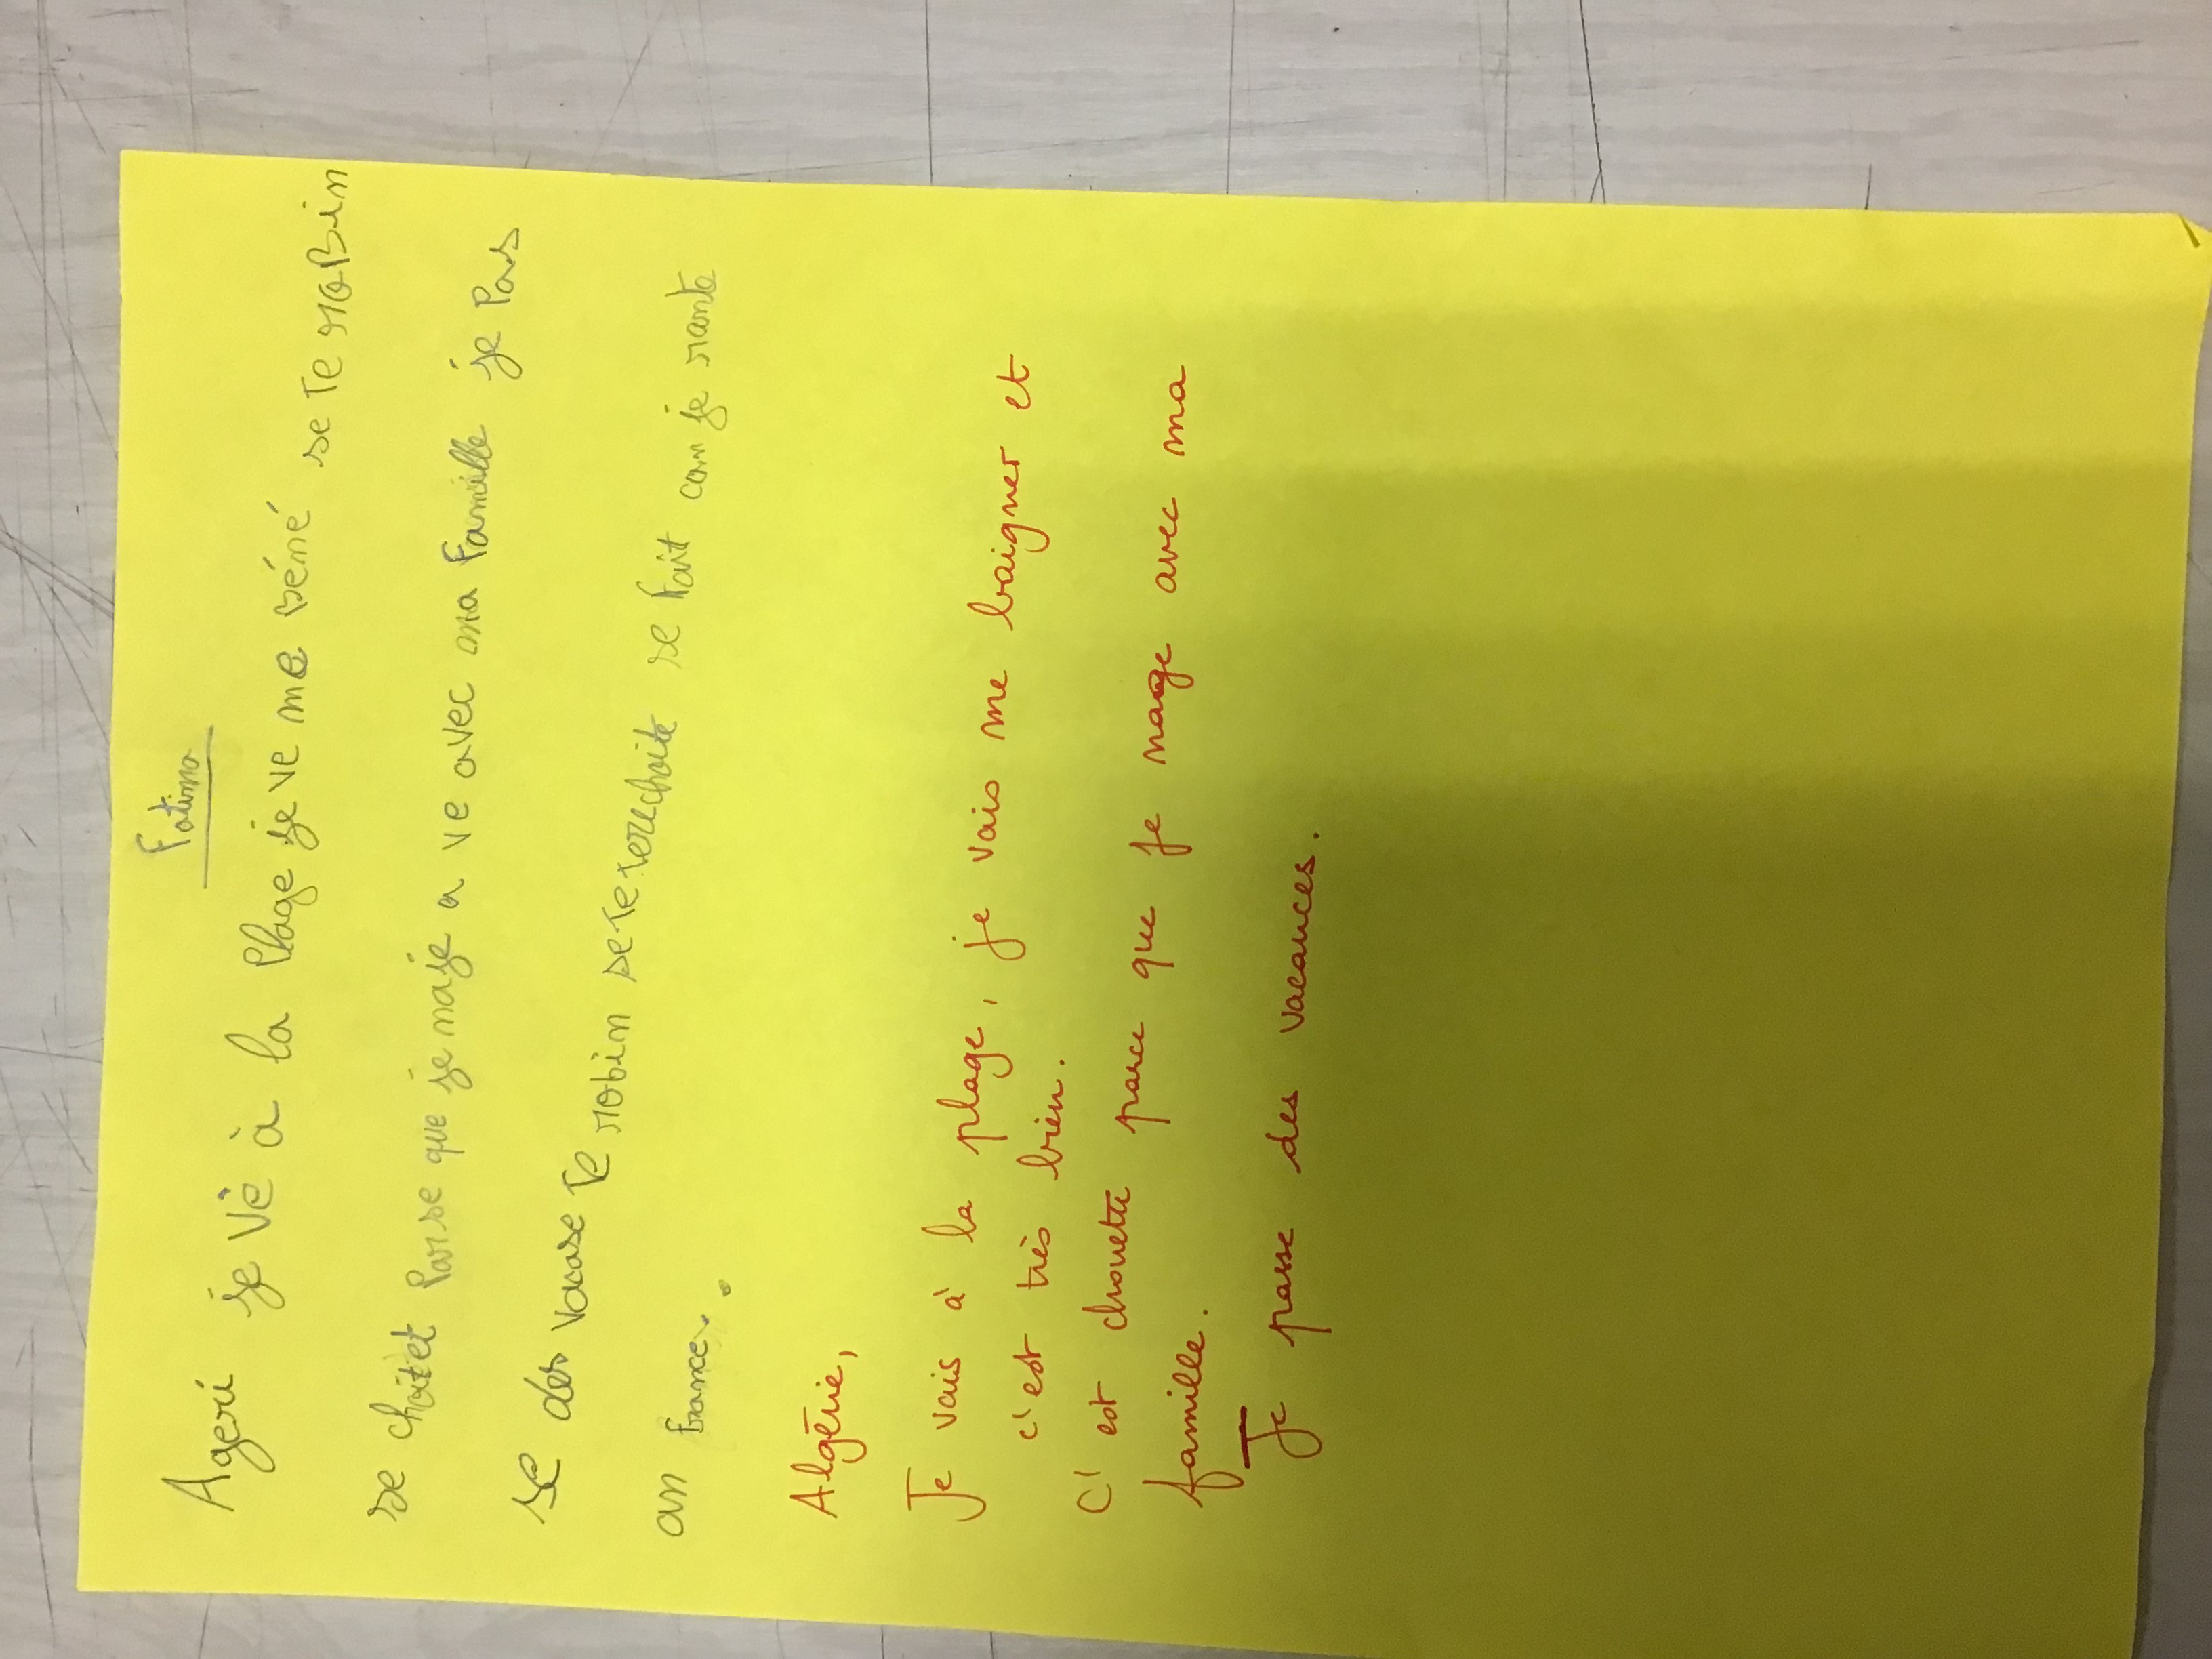 Fatima
Ageri je vè à la Plage je ve me béné se Te roBin
se chaitet Parse que je maje a ve avec ma Famille je Pas
se des vacase Te robin se Te rechaite se fait can je rante
an France.
Algérie,
Je vais à la plage, je vais me baigner et
c'est très bien.
C'est chouette parce que je nage avec ma
famille.
Je passe des vacances.